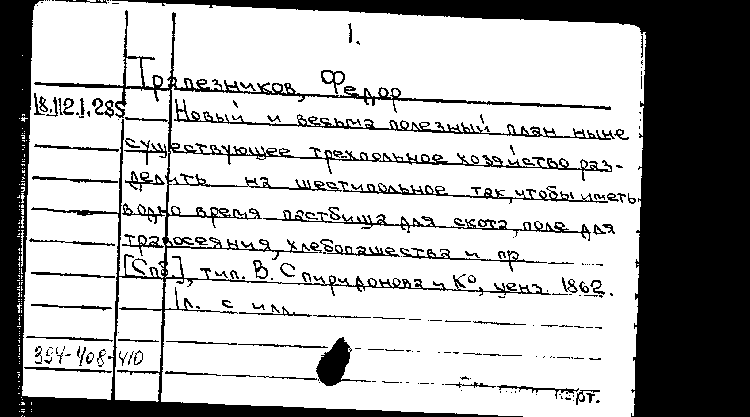 1.
Трапезников, Федор
18.112.1.285
Новый и весьма полезный план ныне
существующее трехпольное хозяйство раз-
делить на шестипольное так, чтобы иметь
в одно время пастбища для скота, поле для
травосеяния, хлебопашества и пр
[Спб.], тип. В. Спиридонова и К°, ценз. 1862.
1 л. с илл.
394-408-410